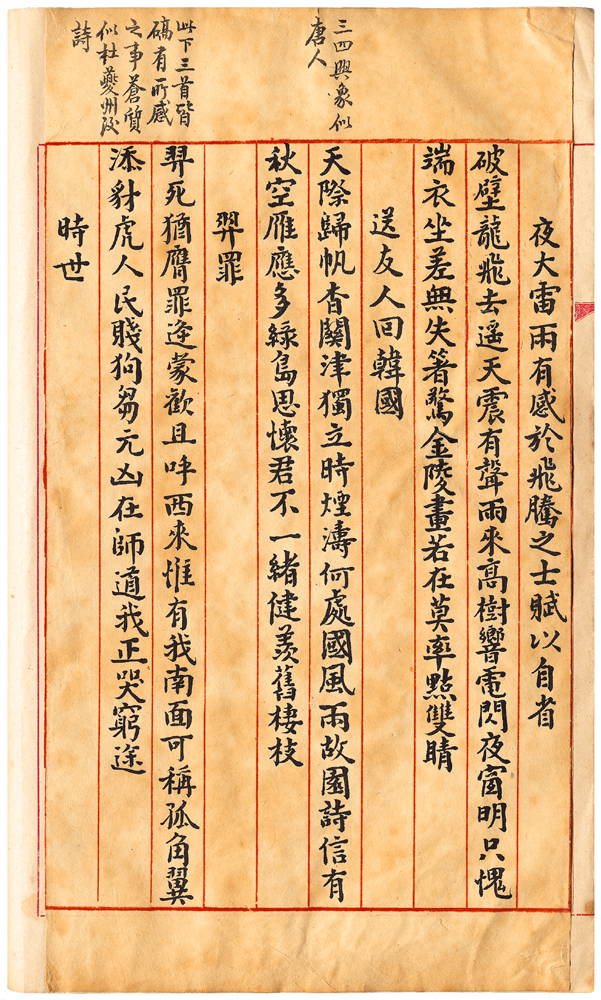 三四興象似
唐人
夜大雷雨有感於飛騰之士賦以自省
破壁龍飛去遥天震有聲雨來高樹響電閃夜窗明只愧
端衣坐差無失箸驚金陵畫若在莫率點雙睛
送友人回韓國
天際歸帆杳關津獨立時煙濤何處國風雨故園詩信有
秋空雁應多綠島思懷君不一緒健羨舊棲枝
此下三首皆
碻有所感
之事蒼質
似杜夔州後
詩
羿罪
羿死猶膺罪逄蒙歡且呼西來惟有我南面可稱孤角翼
添豺虎人民賤狗芻元凶在師道我正哭窮途
時世